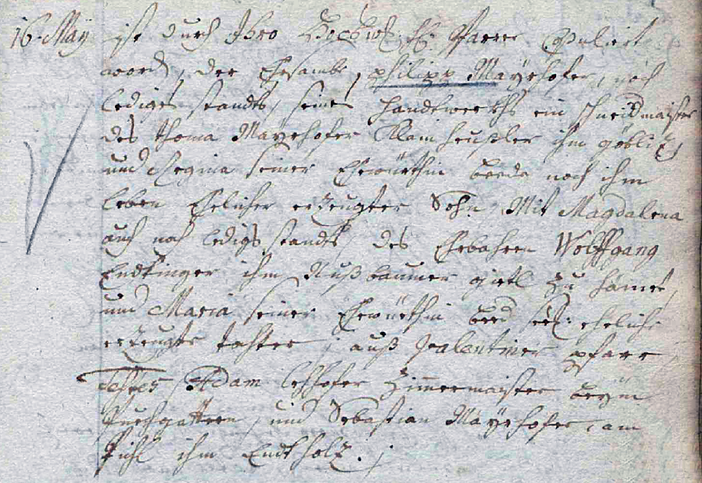 16. Maÿ ist durch Ihro Hochw: H: Pfarrer Copuliert
worden, der Ehrsambe, philipp Maÿrhofer, noch
ledigen standts, seines handtwerchs ein schneidmaister
des thoma Maÿrhofer ihm
und Regina seiner Ehewürthin beede noch ihm
leben Ehelicher erzeugter Sohn, Mit Magdalena
auch noch ledigs standts, des Ehrbahren Wolffgang
Endtinger ihm Nußbaumer zu
und Maria seiner Ehewürthin beed seel: ehelich
erzeugte tochter, auß Valentiner pfarr,
Testes, Adam Lehhofer Zimmermaister beÿm
und Sebastian Maÿrhofer, am
Pichl ihm Endtholz.